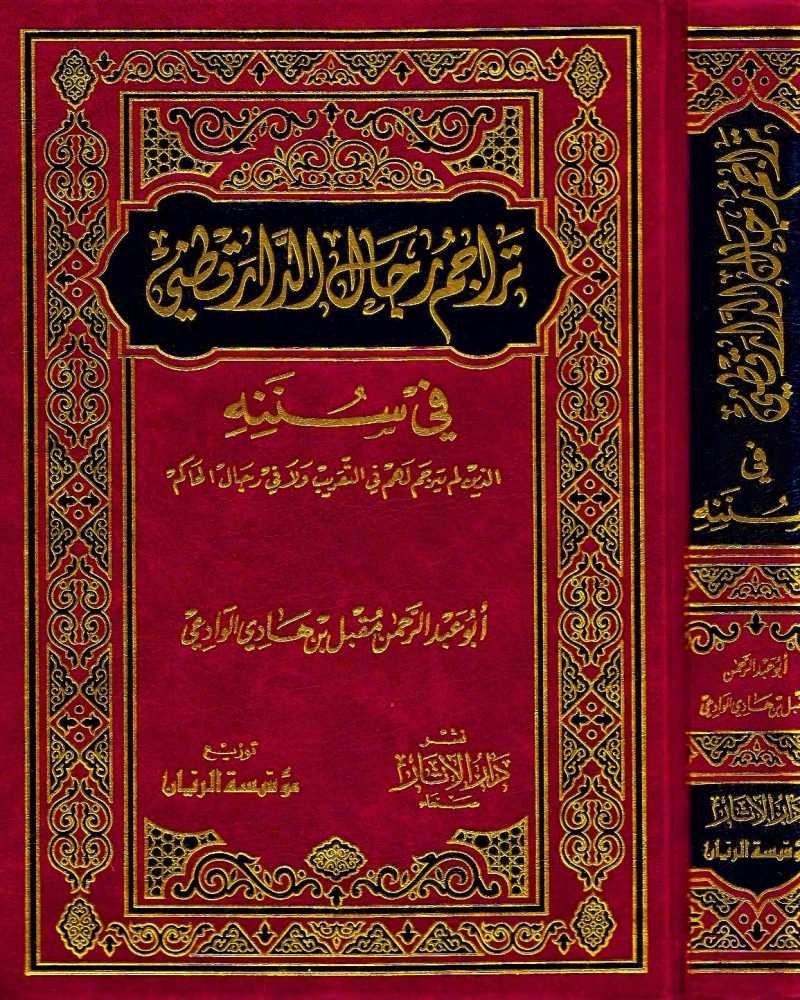 تراجم رجال الدارقطني
في سننه
الذين لم يترجم لهم في التقريب ولا في رجال الحاكم
أبو عبد الرحمن مقبل بن هادي الوادعي
نشر
دار الآثار
صنعاء
توزيع
مؤسسة الريان
تراجم رجال الدارقطني
في
سننه
أبو عبد الرحمن
مقبل بن هادي الوادعي
دار الآثار
مؤسسة الريان